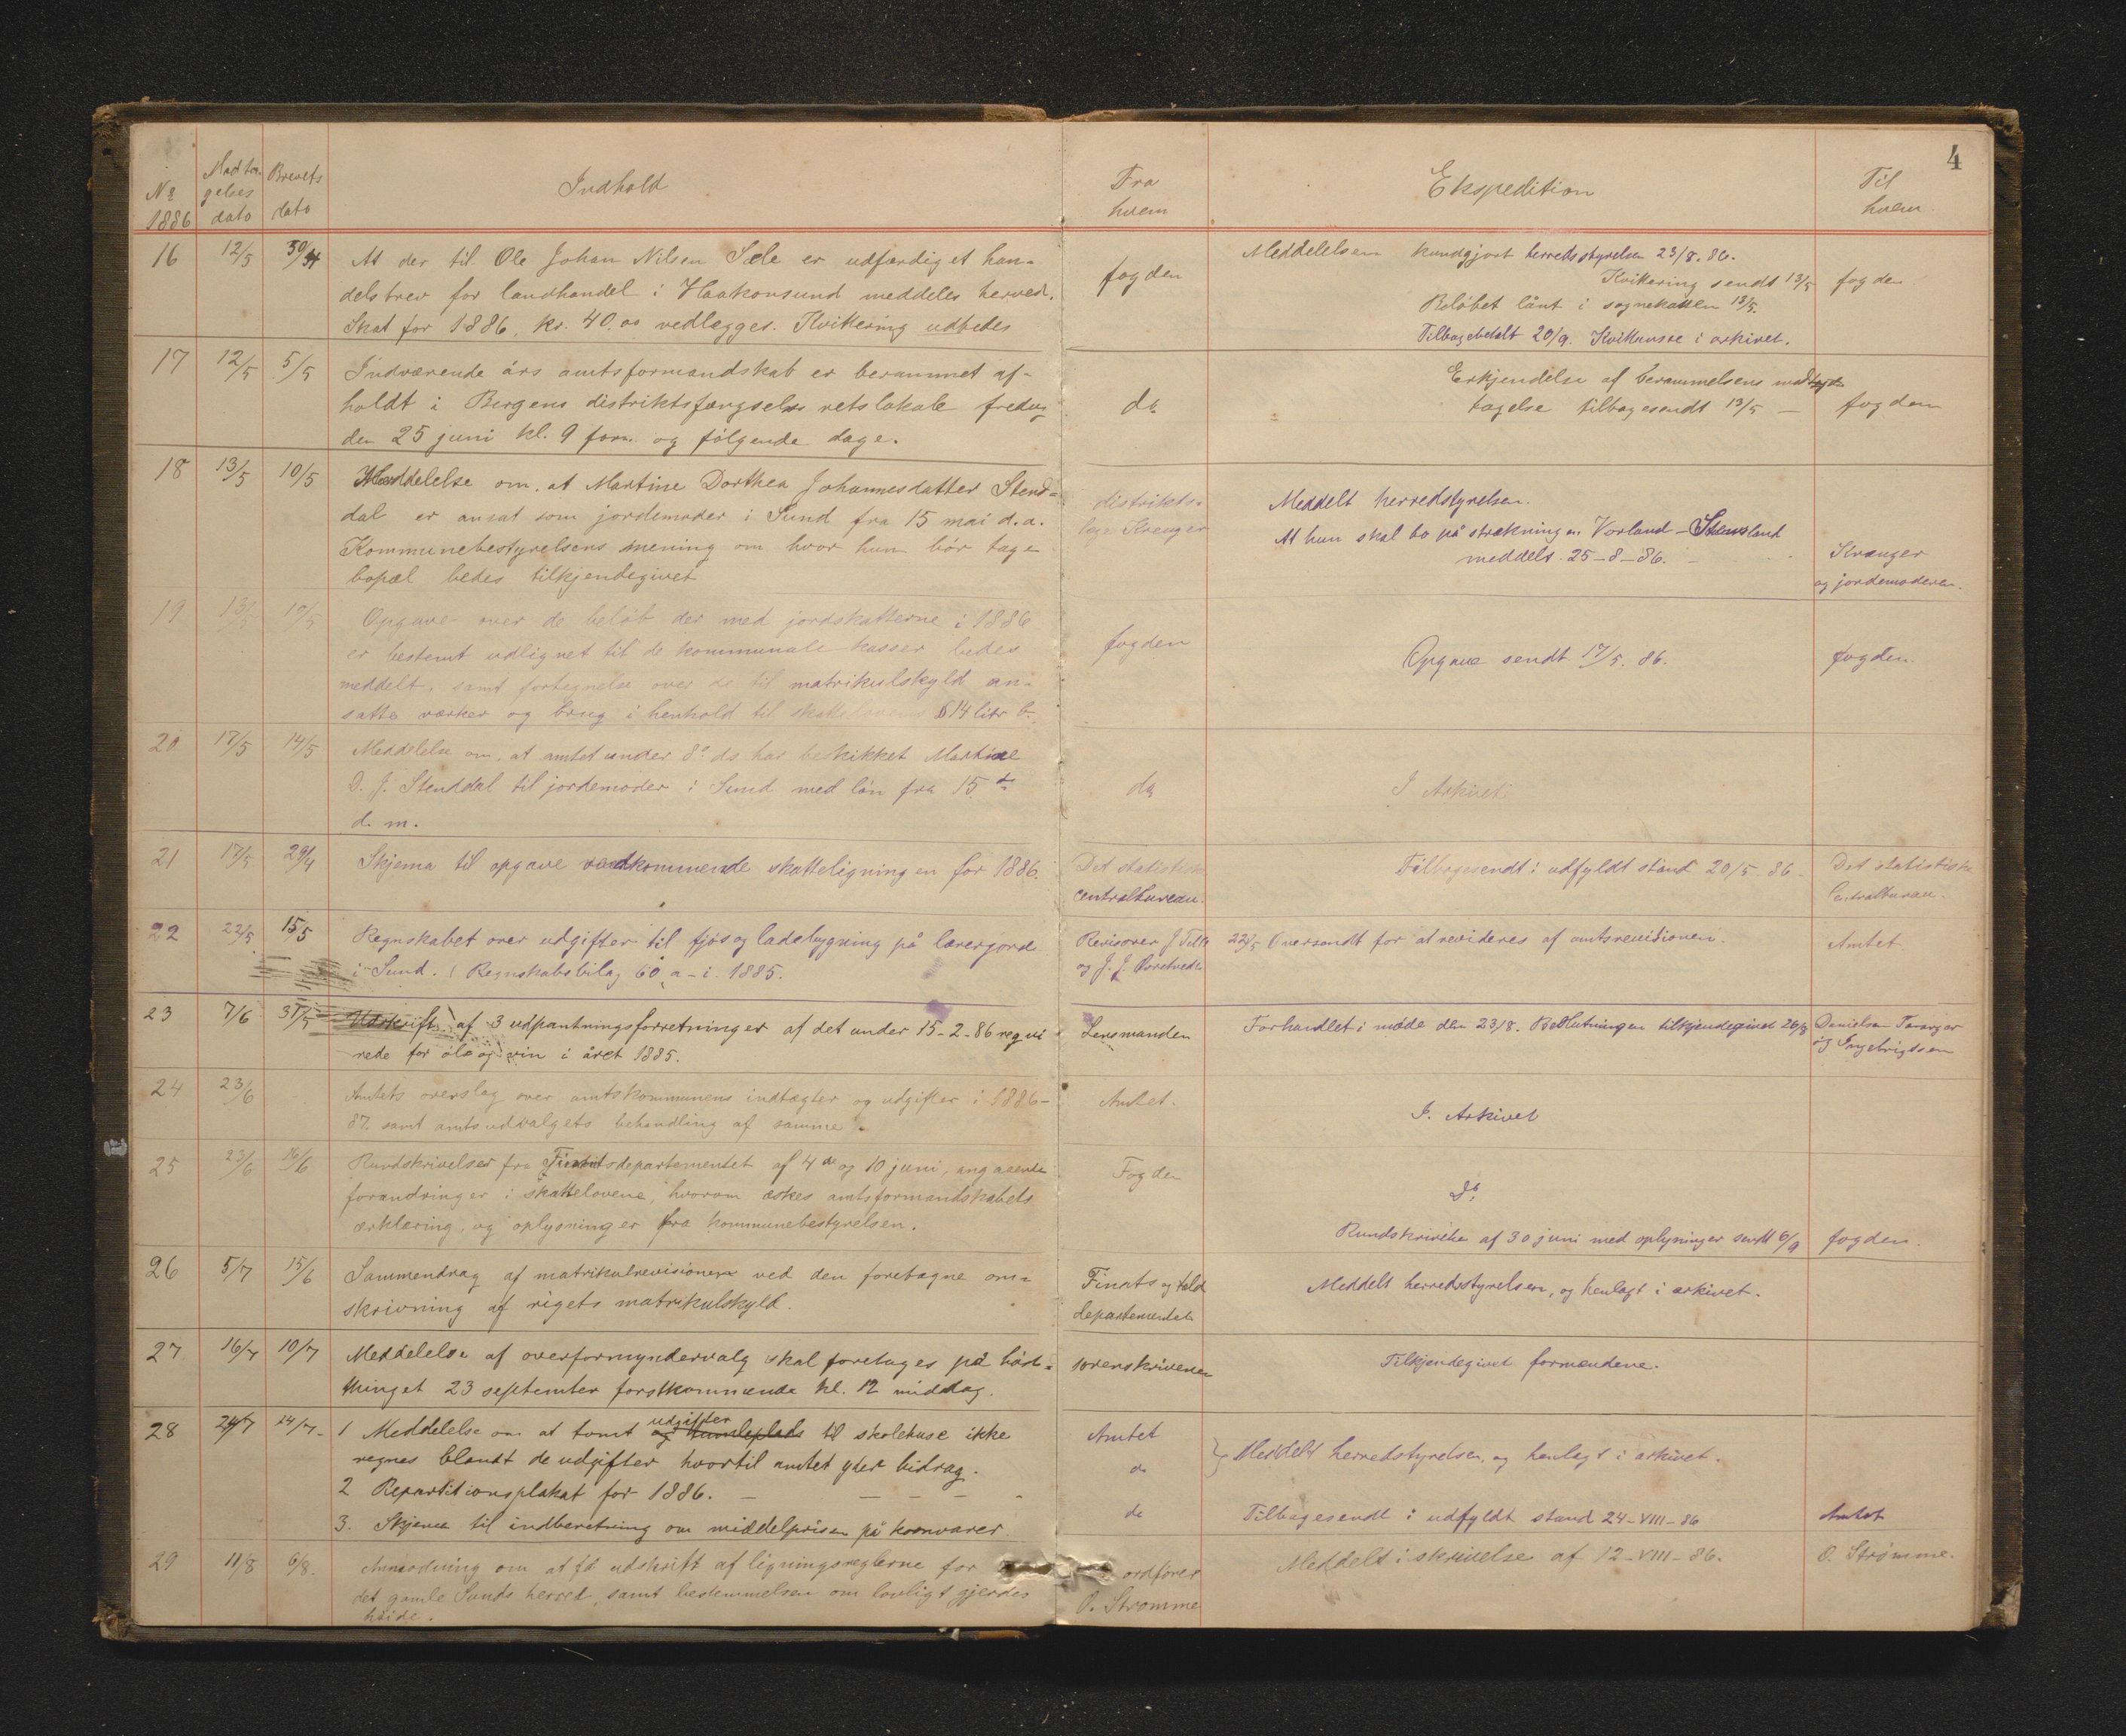 4
№ 1886
Modta-
gelses
dato
Brevets
dato
Indhold
Fra
hvem
Ekspedition
Til
hvem
16 12/5 30/4 At der til Ole Johan Nilsen Sæle er udfærdiget han-
delsbrev for landhandel i Haakonsund meddeles herved.
Skat for 1886, kr. 40.00 vedlægges. Kvittering udbedes
fogden
Meddelelsen kundgjort herredsstyrelsen 23/8. 86.
Kvittering sendt 13/5
Beløbet lånt i sognekassen 13/5.
Tilbagebetalt 20/9. Kvitteringen i arkivet.
fogden
17 12/5 5/5 Indværende års amtsformandskab er berammet af-
holdt i Bergens distriktsfængsels retslokale fredag
den 25 juni kl. 9 form. og følgende dage.
do
Erkjendelse af berammelsens mod
tagelse tilbagesendt 13/5 —
fogden
18 13/5 10/5 Meddelelse om, at Martine Dorthea Johannesdatter Stend-
dal er ansat som jordemoder i Sund fra 15 mai d.a.
Kommunebestyrelsens mening om hvor hun bör tage
bopæl bedes tilkjendegivet
distrikts-
læge Krenger
Meddelt herredstyrelsen.
At hun skal bo på strækningen Vorland –
meddelt 25–8–86.
Krænger
og jordemoderen.
19 13/5 10/5 Opgave over de beløb der med jordskatterne i 1886
er bestemt udlignet til de kommunale kasser bedes
meddelt, samt fortegnelse over de til matrikulskyld an-
satte værker og brug i henhold til skattelovens § 14 litr b.
fogden
Opgave sendt 17/5. 86.
fogden.
20 17/5 14/5 Meddelelse om, at amtet under 8de ds har beskikket Martine
D. J. Stenddal til jordemoder i Sund med lön fra 15de
d. m.
do
I Arkivet.
21 17/5 29/4 Skjema til opgave vedkommende skatteligningen for 1886.
Det statistiske
Centralbureau.
Tilbagesendt i udfyldt stand 20/5 86.
Det statistiske
Centralbureau.
22 22/5 15/5 Regnskabet over udgifter til fjös og ladebygning på lærerjord
i Sund. (Regnskabsbilag 60 a–i. 1885.
Revisorer J Telle
og J. J.
22/5 Oversendt for at revideres af amtsrevisionen.
Amtet
23 7/6 31/5 Udskrift af 3 udpantningsforretninger af det under 15–2–86 reqvi
rede for öl og vin i året 1885.
Lensmanden
Forhandlet i möde den 23/8. Beslutningen tilkjendegivet 26/8
Danielsen Taranger
og Ingebrigtsen
24 23/6 Amtets overslag over amtskommunens indtægter og udgifter i 1886–
87. samt amtsudvalgets behandling af samme.
Amtet.
I. Arkivet
25 23/6 16/6 Rundskrivelser fra Finantsdepartementet af 4de og 10 juni, angaaende
forandringer i skattelovene, hvorom æskes amtsformandskabets
erklæring, og oplysninger fra kommunebestyrelsen.
Fogden
Do.
Rundskrivelse af 30 juni med oplysninger sendt 6/9
fogden.
26 5/7 15/6 Sammendrag af matrikulrevisionen ved den foretagne om-
skrivning af rigets matrikulskyld.
Finants og told
departementet
Meddelt herredsstyrelsen, og henlagt i arkivet.
27 16/7 10/7 Meddelelse af overformyndervalg skal foretages på höst-
thinget 23 september førstkommende kl. 12 middag.
sorenskriveren
Tilkjendegivet formændene.
28 24/7 24/7 1 Meddelelse om at tomt og tumleplads udgifter til skolehuse ikke
regnes blandt de udgifter hvortil amtet yder bidrag.
2 Repartitionsplakat for 1886. –
3. Skjema til indberetning om middelprisen på kornvarer.
Amtet
do
do
Meddelt herredstyrelsen, og henlagt i arkivet.
Tilbagesendt i udfyldt stand 24–VIII–86
Amtet
29 11/8 6/8. Anmodning om at få udskrift af ligningsreglerne for
det gamle Sunds herred, samt bestemmelsen om lovligt gjerdes
höide.
ordfører
O. Strømme
Meddelt i skrivelse af 12–VIII–86.
O. Strømme.